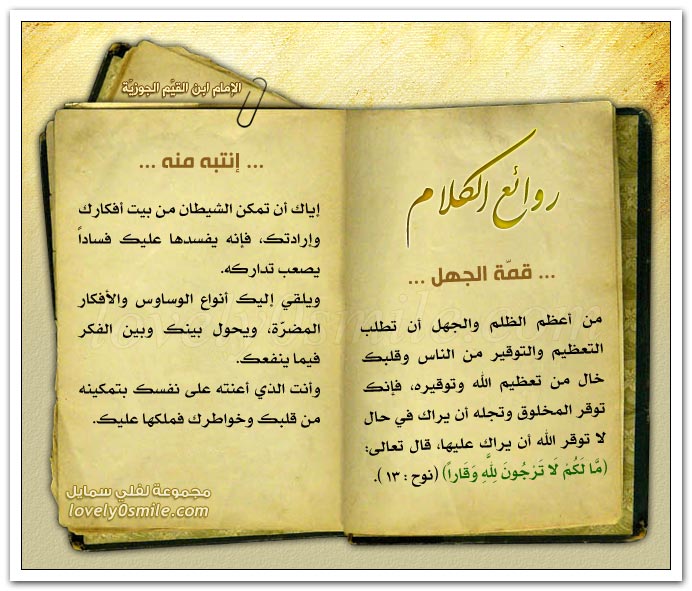 الإمام ابن القيّم الجوزيّة
روائع الكلام
... قمّة الجهل ...
من أعظم الظلم والجهل أن تطلب
التعظيم والتوقير من الناس وقلبك
خال من تعظيم الله وتوقيره، فإنك
توقر المخلوق وتجله أن يراك في حال
لا توقر الله أن يراك عليها، قال تعالى:
(مَّا لَكُمْ لَا تَرْجُونَ لِلَّهِ وَقَاراً) (نوح : ١٣ ).
... إنتبه منه ...
إياك أن تمكن الشيطان من بيت أفكارك
وإرادتك، فإنه يفسدها عليك فساداً
يصعب تداركه.
ويلقي إليك أنواع الوساوس والأفكار
المضرّة، ويحول بينك وبين الفكر
فيما ينفعك.
وأنت الذي أعنته على نفسك بتمكينه
من قلبك وخواطرك فملكها عليك.
مجموعة لفلي سمايل
lovely0smile.com
lovely0smile.com